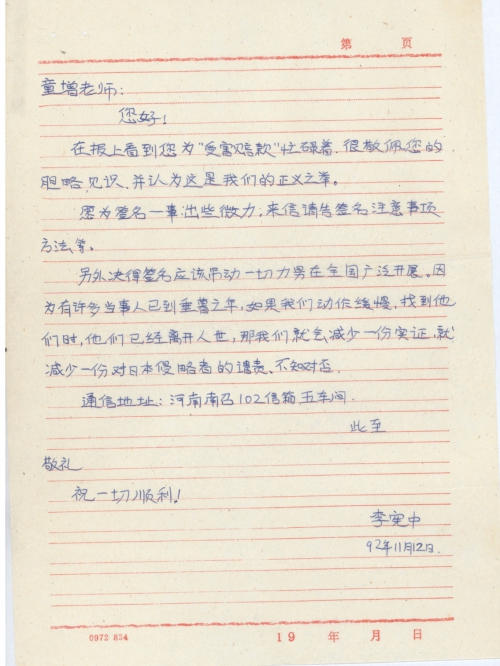 第 页
童增老师:
您好!
在报上看到您为"受害赔款"忙碌着,很敬佩您的
胆略、见识、并认为这是我们的正义之举。
愿为签名一事出些微力,来信请告签名注意事项
方法等。
另外决得签名应该吊动一切力另在全国广泛开展。因
为有许多当事人已到垂暮之年,如果我们动作缓慢,找到他
们时,他们已经离开人世,那我们就会减少一份实证,就
减少一份对日本侵略者的谴责、不知对否.
通信地址:河南南召102信箱五车间.
此至
敬礼
祝一切顺利!
李宪中
92年11月12日.
0972 834
19 年 月 日